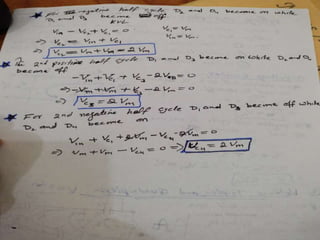 ★ For negative half cycle D2 and D4 become on while
D1 and D3 become off
KVL:
Vin - Vc2 + Vc1 = 0
Vc1 = Vm
⇒ Vc2 = Vin + Vc1
Vin = Vm.
⇒ Vc2 = Vm + Vm = 2Vm
★ In 2nd positive half cycle D1 and D3 become on while D2 and D4
become off
-Vin + Vc1 + Vc3 - 2Vm = 0
⇒ -Vm + Vm + Vc3 - 2Vm = 0
⇒ Vc3 = 2Vm
★ For 2nd negative half cycle D1 and D3 become off while
D2 and D4 become on
Vin + Vc1 + 2Vm - Vc4 - 2Vm = 0
⇒ Vm + Vm - Vc4 = 0 ⇒ Vc4 = 2Vm